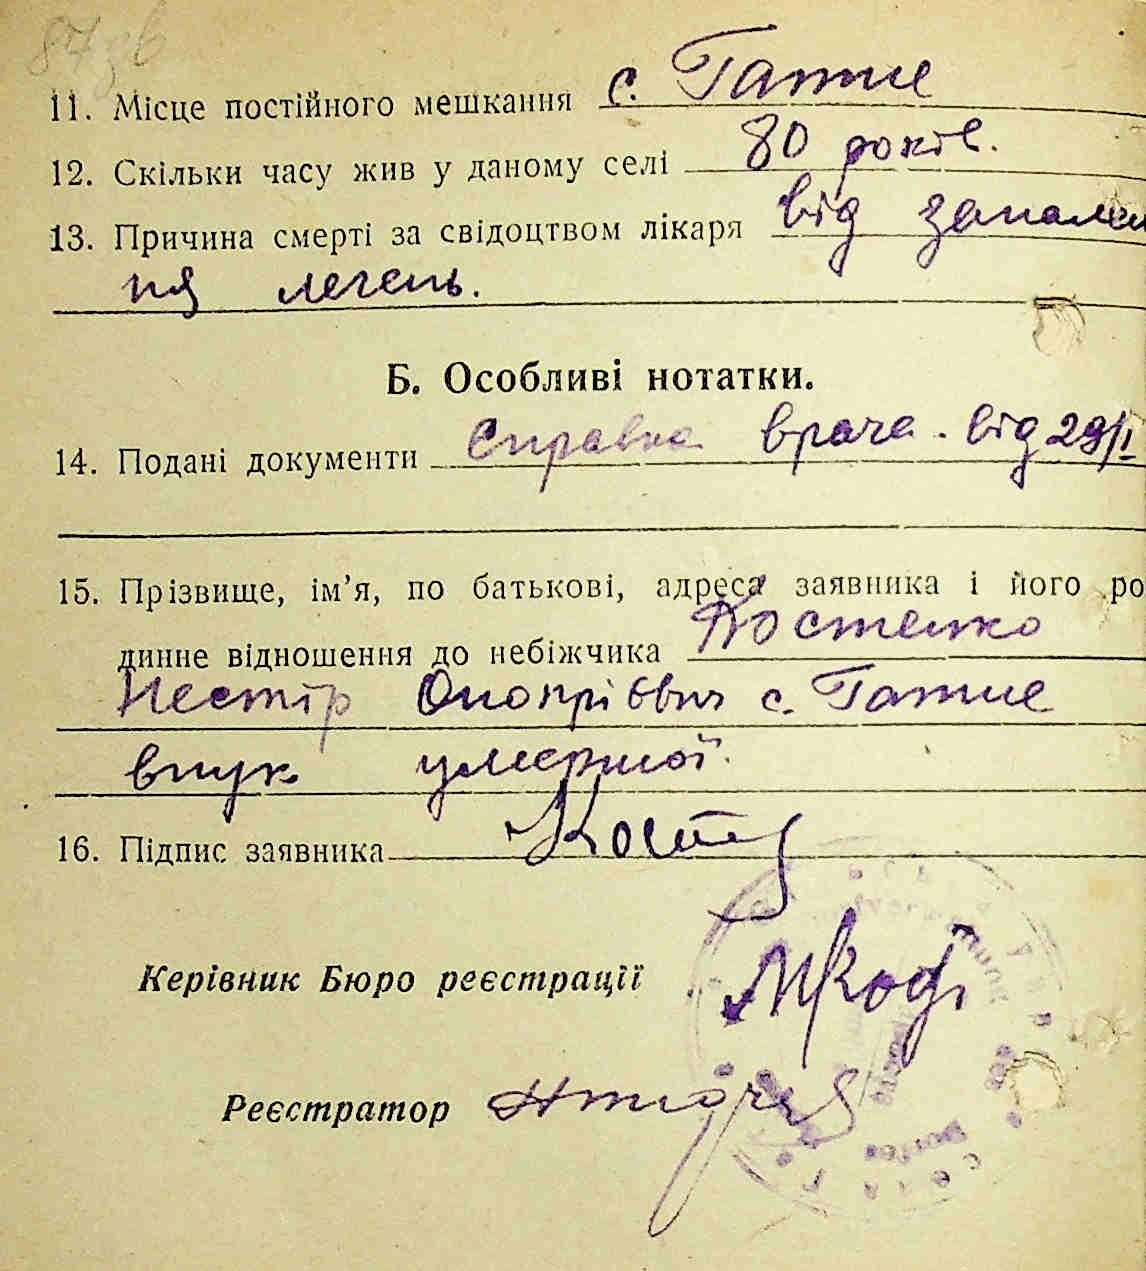 11. Місце постійного мешкання с. Гатне
12. Скільки часу жив у даному селі 80 років.
13. Причина смерті за свідоцтвом лікаря від запален
ня легень.
Б. Особливі нотатки.
14. Подані документи Справка врача. від 29/I
15. Прізвище, ім’я, по батькові, адреса заявника і його ро
динне відношення до небіжчика Костенко
Нестір Онопрієвич с. Гатне
внук умершої.
16. Підпис заявника
Керівник Бюро реєстрації
Реєстратор